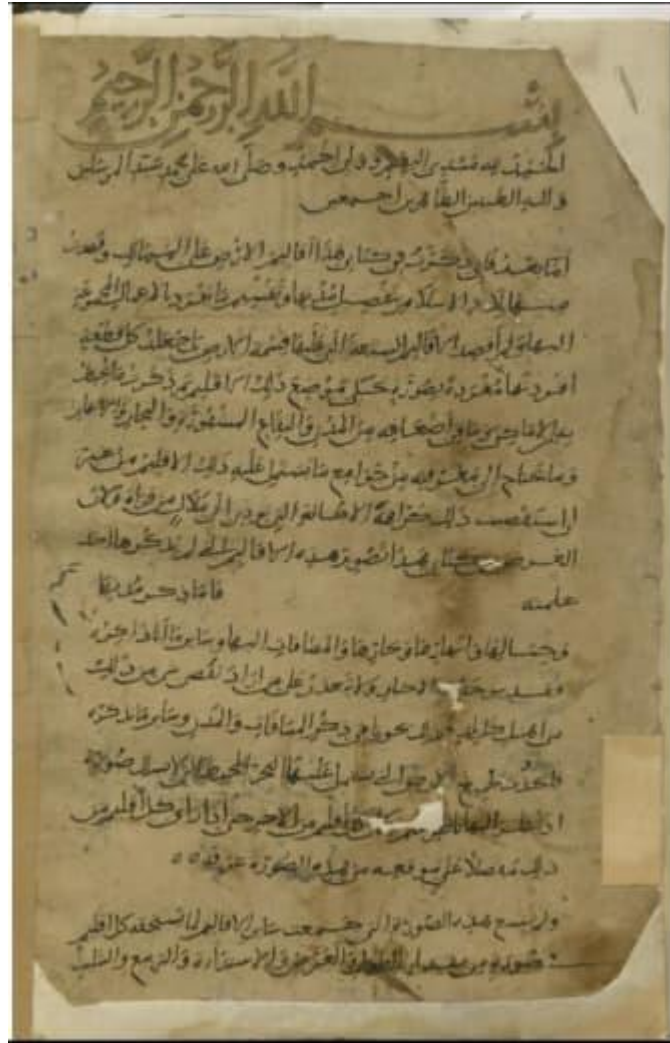 بِسْمِ اللَّهِ الرَّحْمَنِ الرَّحِيمِ
الحمد لله مبتدئ النعم وولي الحمد وصلى الله على محمد سيد المرسلين
وآله الطيبين الطاهرين اجمعين
اما بعد فاني ذكرت في كتابي هذا اقاليم الارض على الممالك وقصدت
منها بلاد الاسلام بتفصيل مدنها وتقسيم ما يعود بالاعمال المجموعة
اليها ولم أقصد الاقاليم السبعة التي عليها قسمة الارض بل جعلت كل قطعة
افردتها مفردة مصورة تحكي موضع ذلك الاقليم ثم ذكرت ما يحيط
به من الاماكن وما في أضعافه من المدن والبقاع المشهورة والبحار والانهار
وما يحتاج الى معرفته من جوامع ما يشتمل عليه ذلك الاقليم من غير
ان استقصيت ذلك كراهة الاطالة التي تؤدي الى ملال من قراه ولان
الغرض في كتابي هذا تصوير هذه الاقاليم التي لم يذكرها احد
علمته فاما ذكر مدنها
وجبالها وانهارها وبحارها والمسافات اليها وسائر ما أنا ذاكره
فقد يوجد في الاخبار ولا يتعذر على من أراد تقصي شي من ذلك
من اهل كل بلد فلذلك تجوزنا في ذكر المسافات والمدن وسائر ما نذكره
فاتخذت لجميع الارض التي يشتمل عليها البحر المحيط الذي لا يسلك صورة
اذا نظر اليها ناظر علم مكان كل اقليم من الاخر حتى اذا رأى كل اقليم من
ذلك مفصلا علم موقعه من هذه الصورة
ولم تتسع هذه الصورة التي جمعت سائر الاقاليم لما يستحقه كل اقليم
في صورته من مقدار الطول والعرض والاستدارة والتربيع والتثليث